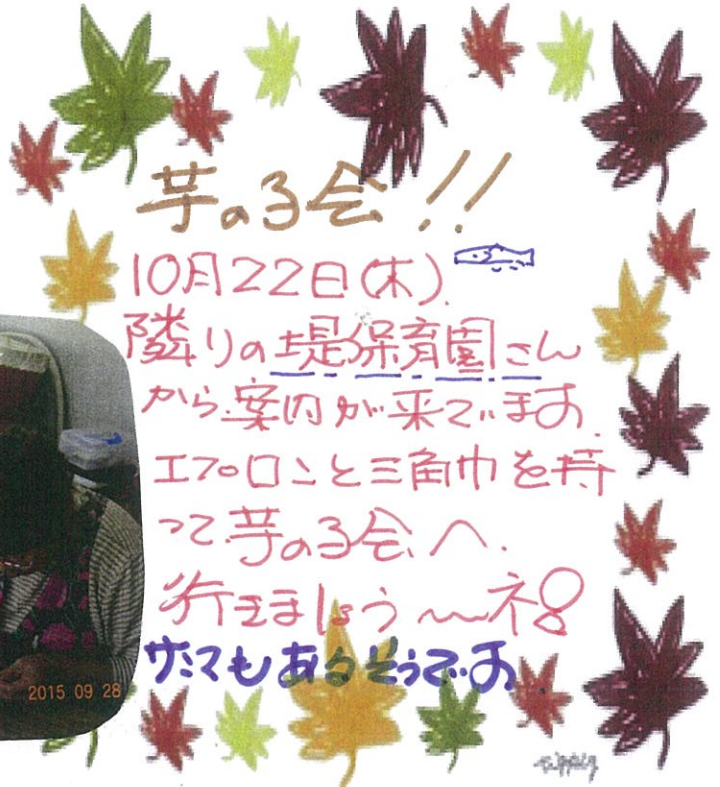 芋の子会!!
10月22日(木).
隣りの堤保育園さん
から案内が来ています.
エプロンと三角巾を持
って芋の子会へ.
行きましょう〜ネ!
サンマもあるそうです
2015 09 28